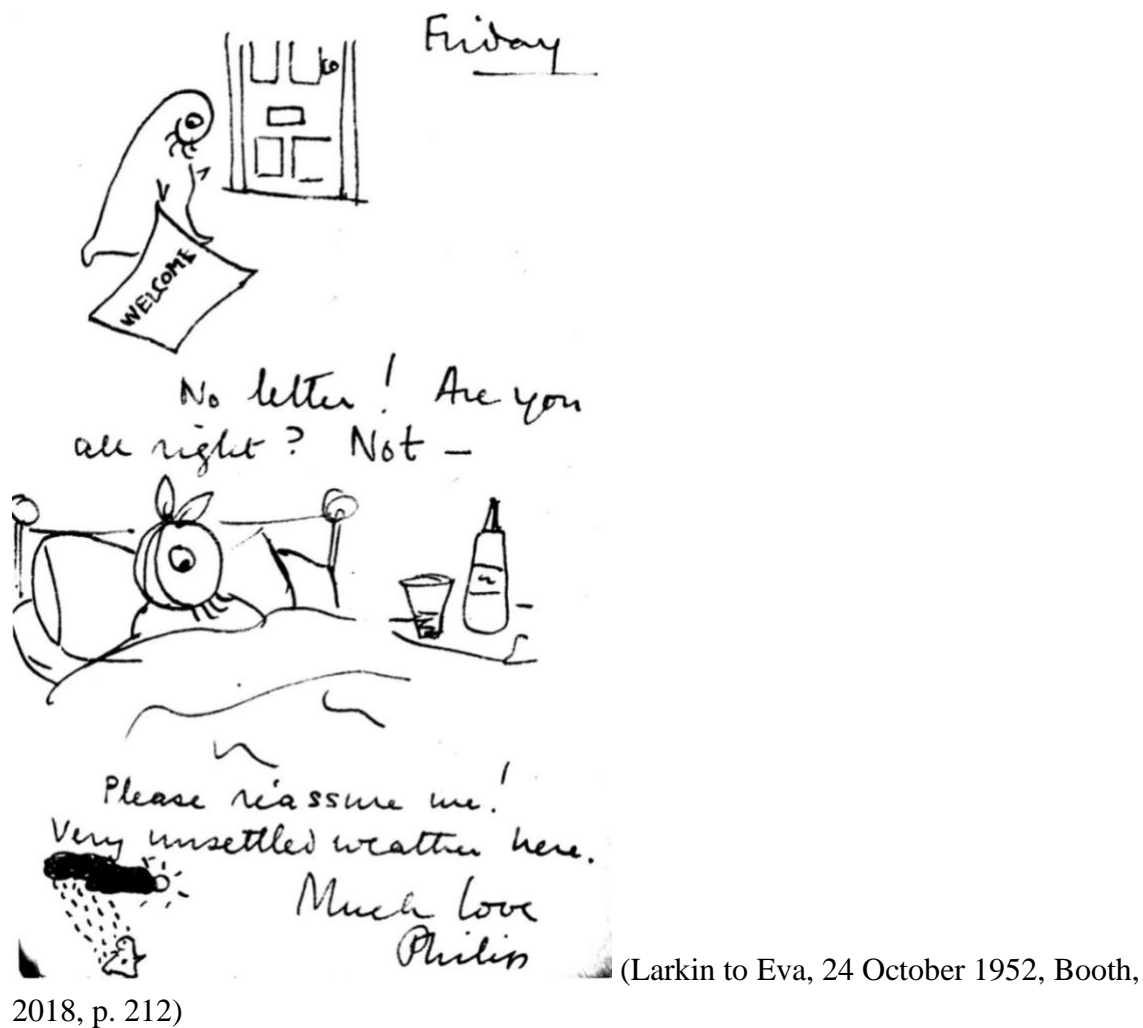 Friday
WELCOME
No letter! Are you
all right? Not –
Please reassure me!
Very unsettled weather here.
Much love
Philip
(Larkin to Eva, 24 October 1952, Booth,
2018, p. 212)